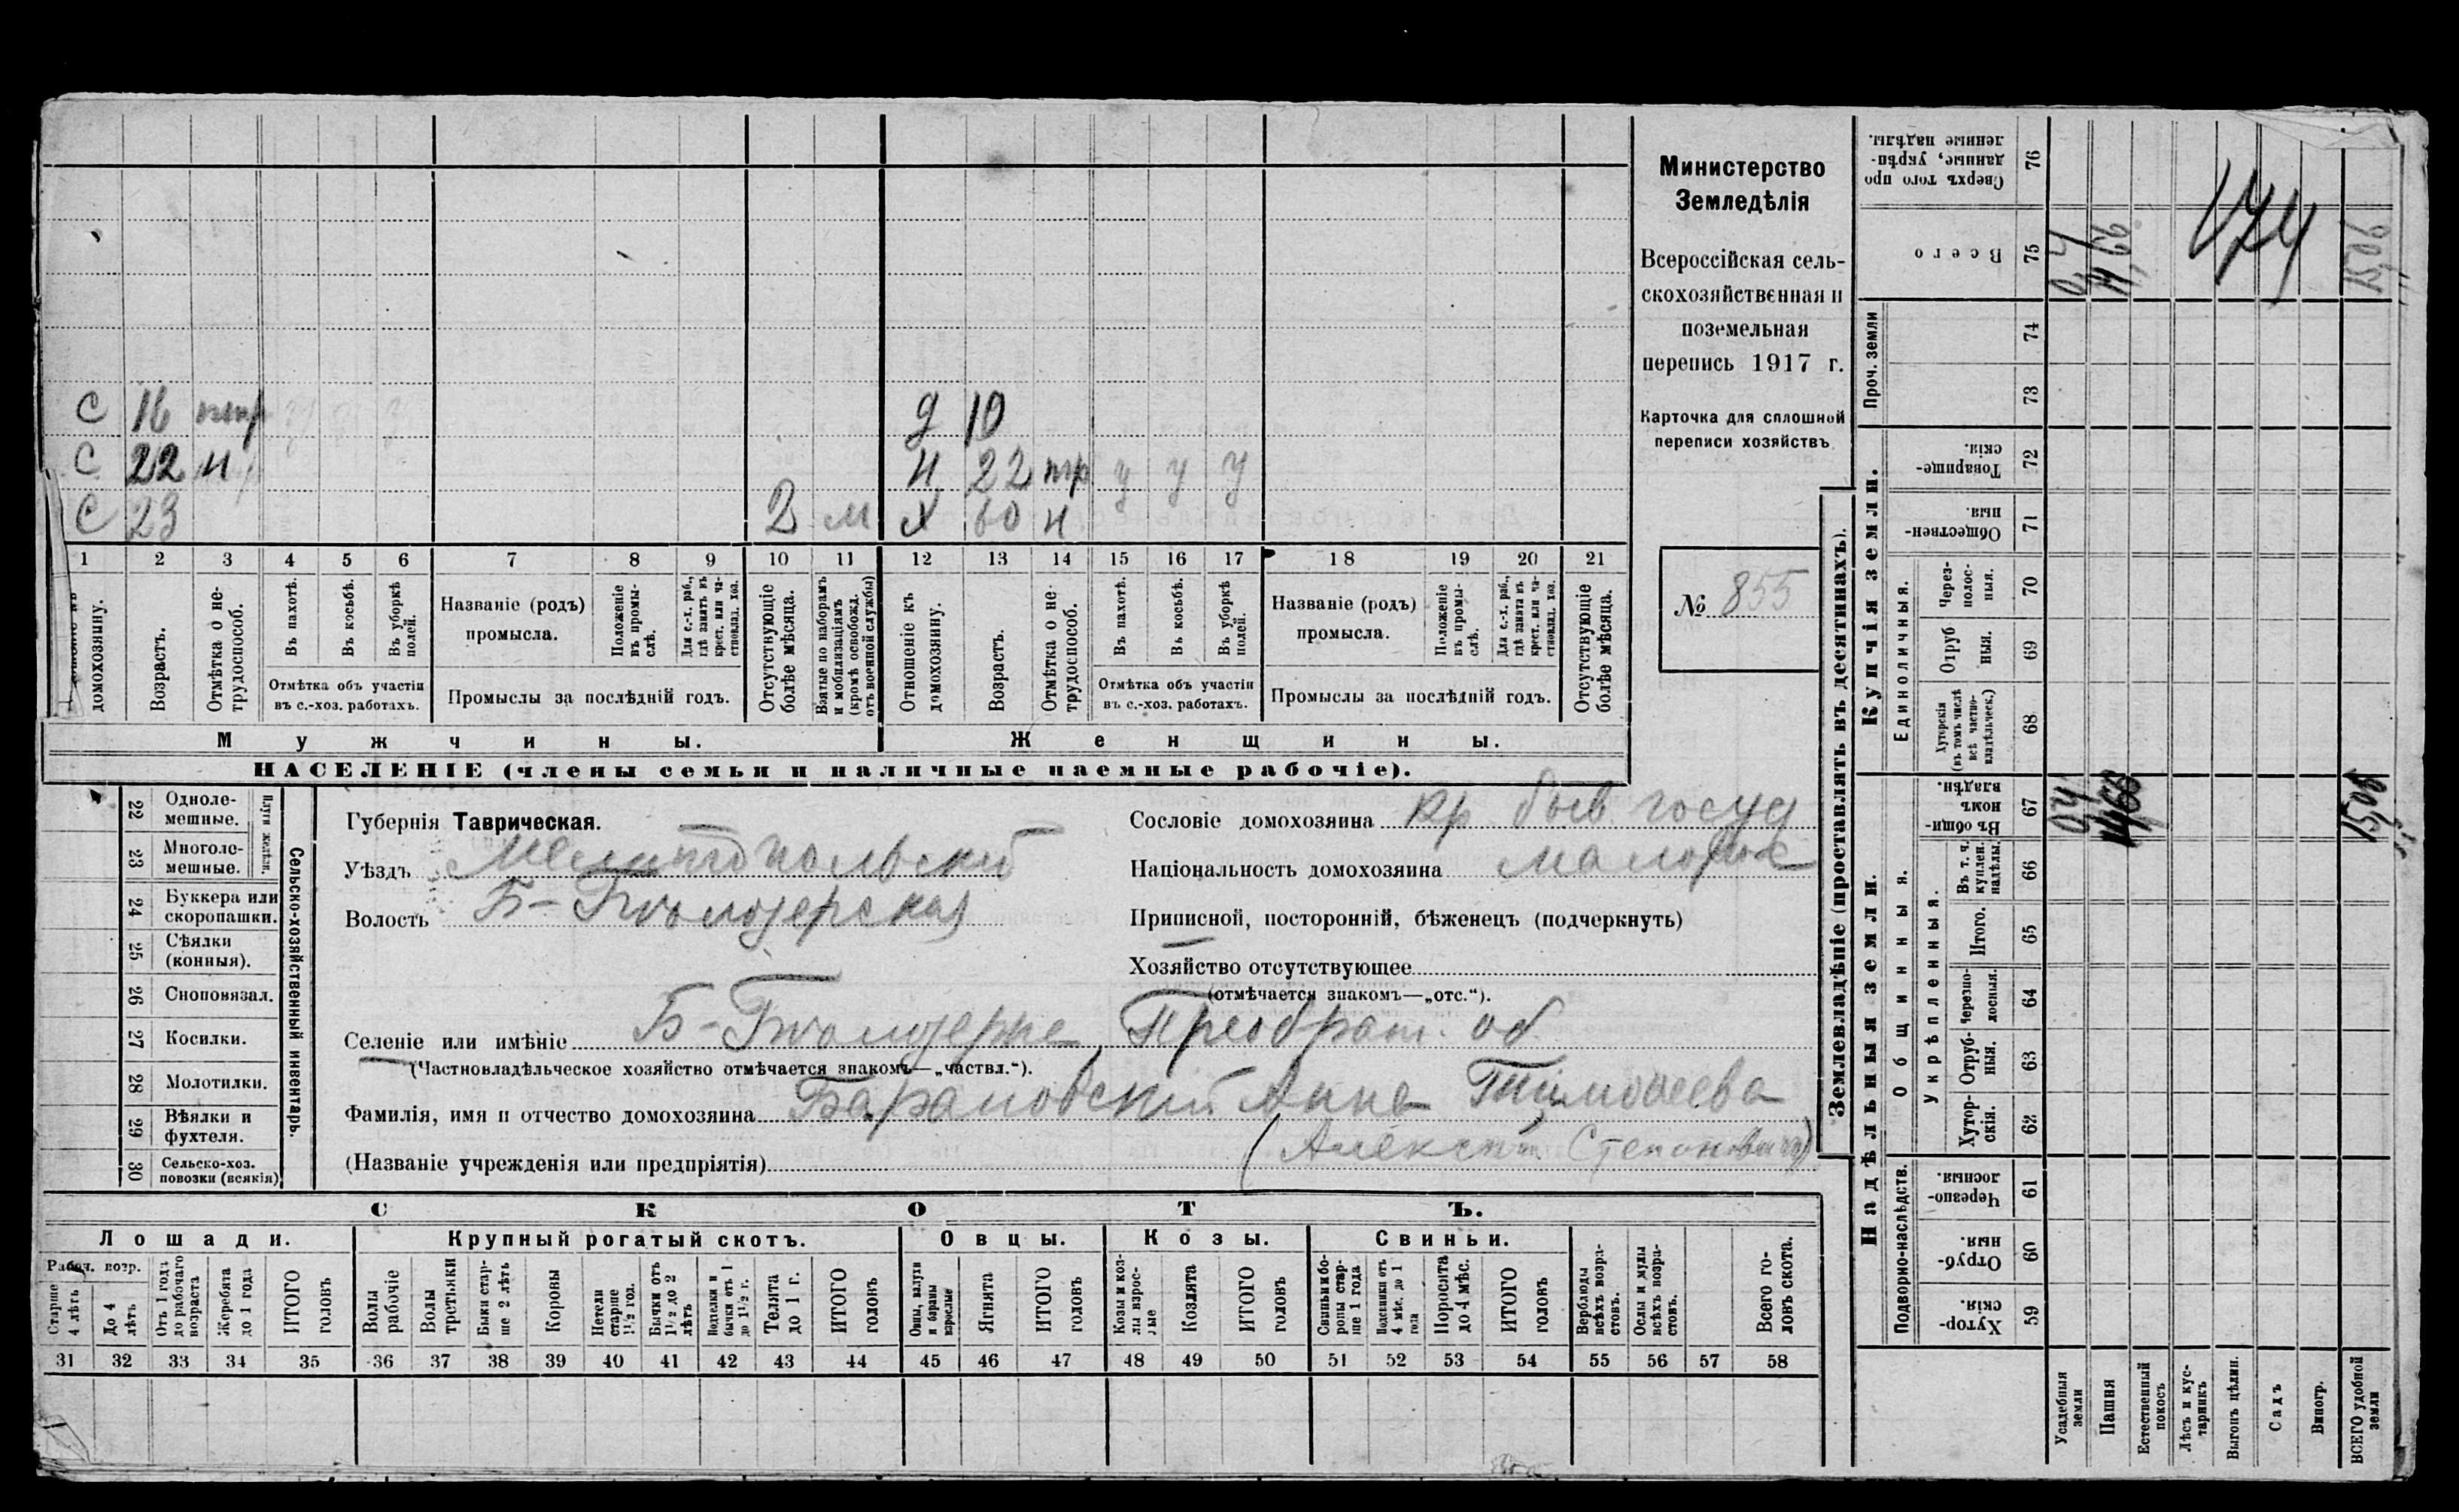 Министерство
Земледѣлія
Всероссійская сель-
скохозяйственная и
поземельная
перепись 1917 г.
Карточка для сплошной
переписи хозяйствъ
№ 855
С 16 д 10
С 22 н н 22 у у у
С 23 2 м х 60 н
1 2 3 4 5 6 7 8 9 10 11 12 13 14 15 16 17 18 19 20 21
домохозяину.
Возрастъ.
Отмѣтка о не-
трудоспособ.
Въ пахотѣ.
Въ косьбѣ.
Въ уборкѣ
полей.
Отмѣтка объ участіи
въ с.-хоз. работахъ.
Названіе (родъ)
промысла.
Положеніе
въ промы-
слѣ.
Для с.-х. раб.,
гдѣ занятъ въ
крест. или ча-
стновлад. хоз.
Промыслы за послѣдній годъ.
Отсутствующіе
болѣе мѣсяца.
Взятые по наборамъ
и мобилизаціямъ
(кромѣ освобожд.
отъ военной службы)
Отношеніе къ
домохозяину.
Возрастъ.
Отмѣтка о не-
трудоспособ.
Въ пахотѣ.
Въ косьбѣ.
Въ уборкѣ
полей.
Отмѣтка объ участіи
въ с.-хоз. работахъ.
Названіе (родъ)
промысла.
Положеніе
въ промы-
слѣ.
Для с.-х. раб.,
гдѣ занята въ
крест. или ча-
стновлад. хоз.
Промыслы за послѣдній годъ.
Отсутствующіе
болѣе мѣсяца.
Мужчины.
Женщины.
НАСЕЛЕНІЕ (члены семьи и наличные наемные рабочіе).
22 Одноле-
мешные.
23 Многоле-
мешные.
Плуги желѣзн.
24 Буккера или
скоропашки.
25 Сѣялки
(конныя).
26 Сноповязал.
27 Косилки.
28 Молотилки.
29 Вѣялки и
фухтеля.
30 Сельско-хоз.
повозки (всякія)
Сельско-хозяйственный инвентарь.
Губернія Таврическая.
Уѣздъ Мелитопольский
Волость Б-Бѣлозерская
Сословіе домохозяина кр быв госуд
Національность домохозяина малорос
Приписной, посторонній, бѣженецъ (подчеркнуть)
Хозяйство отсутствующее
(отмѣчается знакомъ—„отс.“).
Селеніе или имѣніе Б-Бѣлозерка, Преображ. об
(Частновладѣльческое хозяйство отмѣчается знакомъ—„частвл.“).
Фамилія, имя и отчество домохозяина Барановский Анна Тимофеева
(Алексѣй Степановичъ)
(Названіе учрежденія или предпріятія)
СКОТЪ.
Лошади.
Крупный рогатый скотъ.
Овцы.
Козы.
Свиньи.
Рабоч. возр.
Старше
4 лѣтъ
До 4
лѣтъ
Отъ 1 года
до рабочаго
возраста
Жеребята
до 1 года
ИТОГО
головъ
Волы
рабочіе
Волы
третьяки
Быки стар-
ше 2 лѣтъ
Коровы
Нетели
старше
1½ год.
Бычки отъ
1½ до 2
лѣтъ
Подтелки и
бычки отъ 1
до 1½ г.
Телята
до 1 г.
ИТОГО
головъ
Овцы, валухи
и бараны
взрослые
Ягнята
ИТОГО
головъ
Козы и коз-
лы взрос-
лые
Козлята
ИТОГО
головъ
Свиньи и бо-
ровы стар-
ше 1 года
Подсвинки отъ
4 мѣс. до 1
года
Поросята
до 4 мѣс.
ИТОГО
головъ
Верблюды
всѣхъ возра-
стовъ.
Ослы и мулы
всѣхъ возра-
стовъ.
Всего го-
ловъ скота.
31 32 33 34 35 36 37 38 39 40 41 42 43 44 45 46 47 48 49 50 51 52 53 54 55 56 57 58
Землевладѣніе (проставлять въ десятинахъ).
Надѣльныя земли.
Купчія земли.
Проч. земли
Подворно-наслѣдств.
Общинныя.
Укрѣпленныя.
Единоличныя.
Хутор-
скія 59
Отруб-
ныя. 60
Черезпо-
лосныя. 61
Хутор-
скія. 62
Отруб-
ныя. 63
Черезпо-
лосныя. 64
Итого. 65
Въ т. ч.
куплен.
надѣлы. 66
Въ общи-
номъ
владѣн. 67
Хуторскія
(въ томъ числѣ
всѣ частно-
владѣльческ.) 68
Отруб
ныя. 69
Через-
полос-
ныя. 70
Обществен-
ныя. 71
Товарище-
скія. 72
73
74
Всего 75
Сверхъ того про
данные, укрѣп-
ленные надѣлы. 76
Усадебныя
земли
Пашня
Естественный
покосъ
Лѣсъ и кус-
тарникъ
Выгонъ цѣлин.
Садъ
Виногр.
ВСЕГО удобной
земли
174